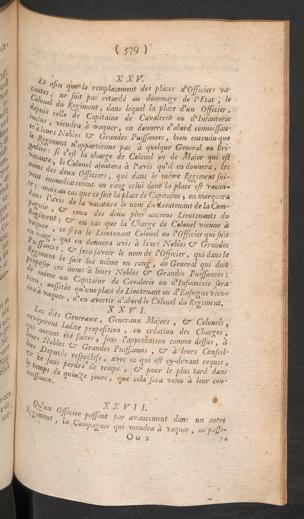 ( 579 )
XXV.
Et afin que le remplacement des places d'Officiers va-
cantes, ne soit pas retardé au dommage de l'Etat; le
Colonel du Regiment, dans lequel la place d'un Officier,
depuis celle de Capitaine de Cavalerie ou d'Infanterie
inclus, viendra à vaquer, en donnera d'abord connoissan-
ce à leurs Nobles & Grandes Puissances, bien entendu que
le Regiment n'appartienne pas à quelque General ou Bri-
gadier: si c'est la charge de Colonel ou de Major qui est
vacante, le Colonel ajoutera à l'avis qu'il en donnera, les
noms des deux Officiers, qui dans le même Regiment sui-
vent immediatement en rang celui dont la place est vacan-
te; mais au cas que ce soit la place de Capitaine, on marquera
dans l'avis de la vacature le nom du Lieutenant de la Com-
pagnie, & ceux des deux plus anciens Lieutenants du
Regiment; & en cas que la Charge de Colonel vienne à
vaquer, ce sera le Lieutenant Colonel ou l'Officier qui suit
en rang, qui en donnera avis à leurs Nobles & Grandes
Puissances, & fera savoir le nom de l'Officier, qui dans le
Regiment le suit lui même en rang, au General qui doit
proposer ces noms à leurs Nobles & Grandes Puissances:
de même un Capitaine de Cavalerie ou d'Infanterie sera
tenu, aussitôt qu'une place de Lieutenant ou d'Enseigne vien-
dra à vaquer, d'en avertir d'abord le Colonel du Regiment.
XXVI.
Les dits Generaux, Generaux Majors, & Colonels,
envoyeront ladite proposition, ou création des Charges,
qui auront été faites, sous l'approbation comme dessus, à
leurs Nobles & Grandes Puissances, & à leurs Conseil-
lers Deputés respectifs, avec ce qui est cy-devant requis,
& ce sans perdre de temps, & pour le plus tard dans
le temps de quinze jours, que cela sera venu à leur con-
noissance.
XXVII.
Qu'un Officier passant par avancement dans un autre
Regiment, la Compagnie qui viendra à vaquer, ne passe-
Ooo 2
ra